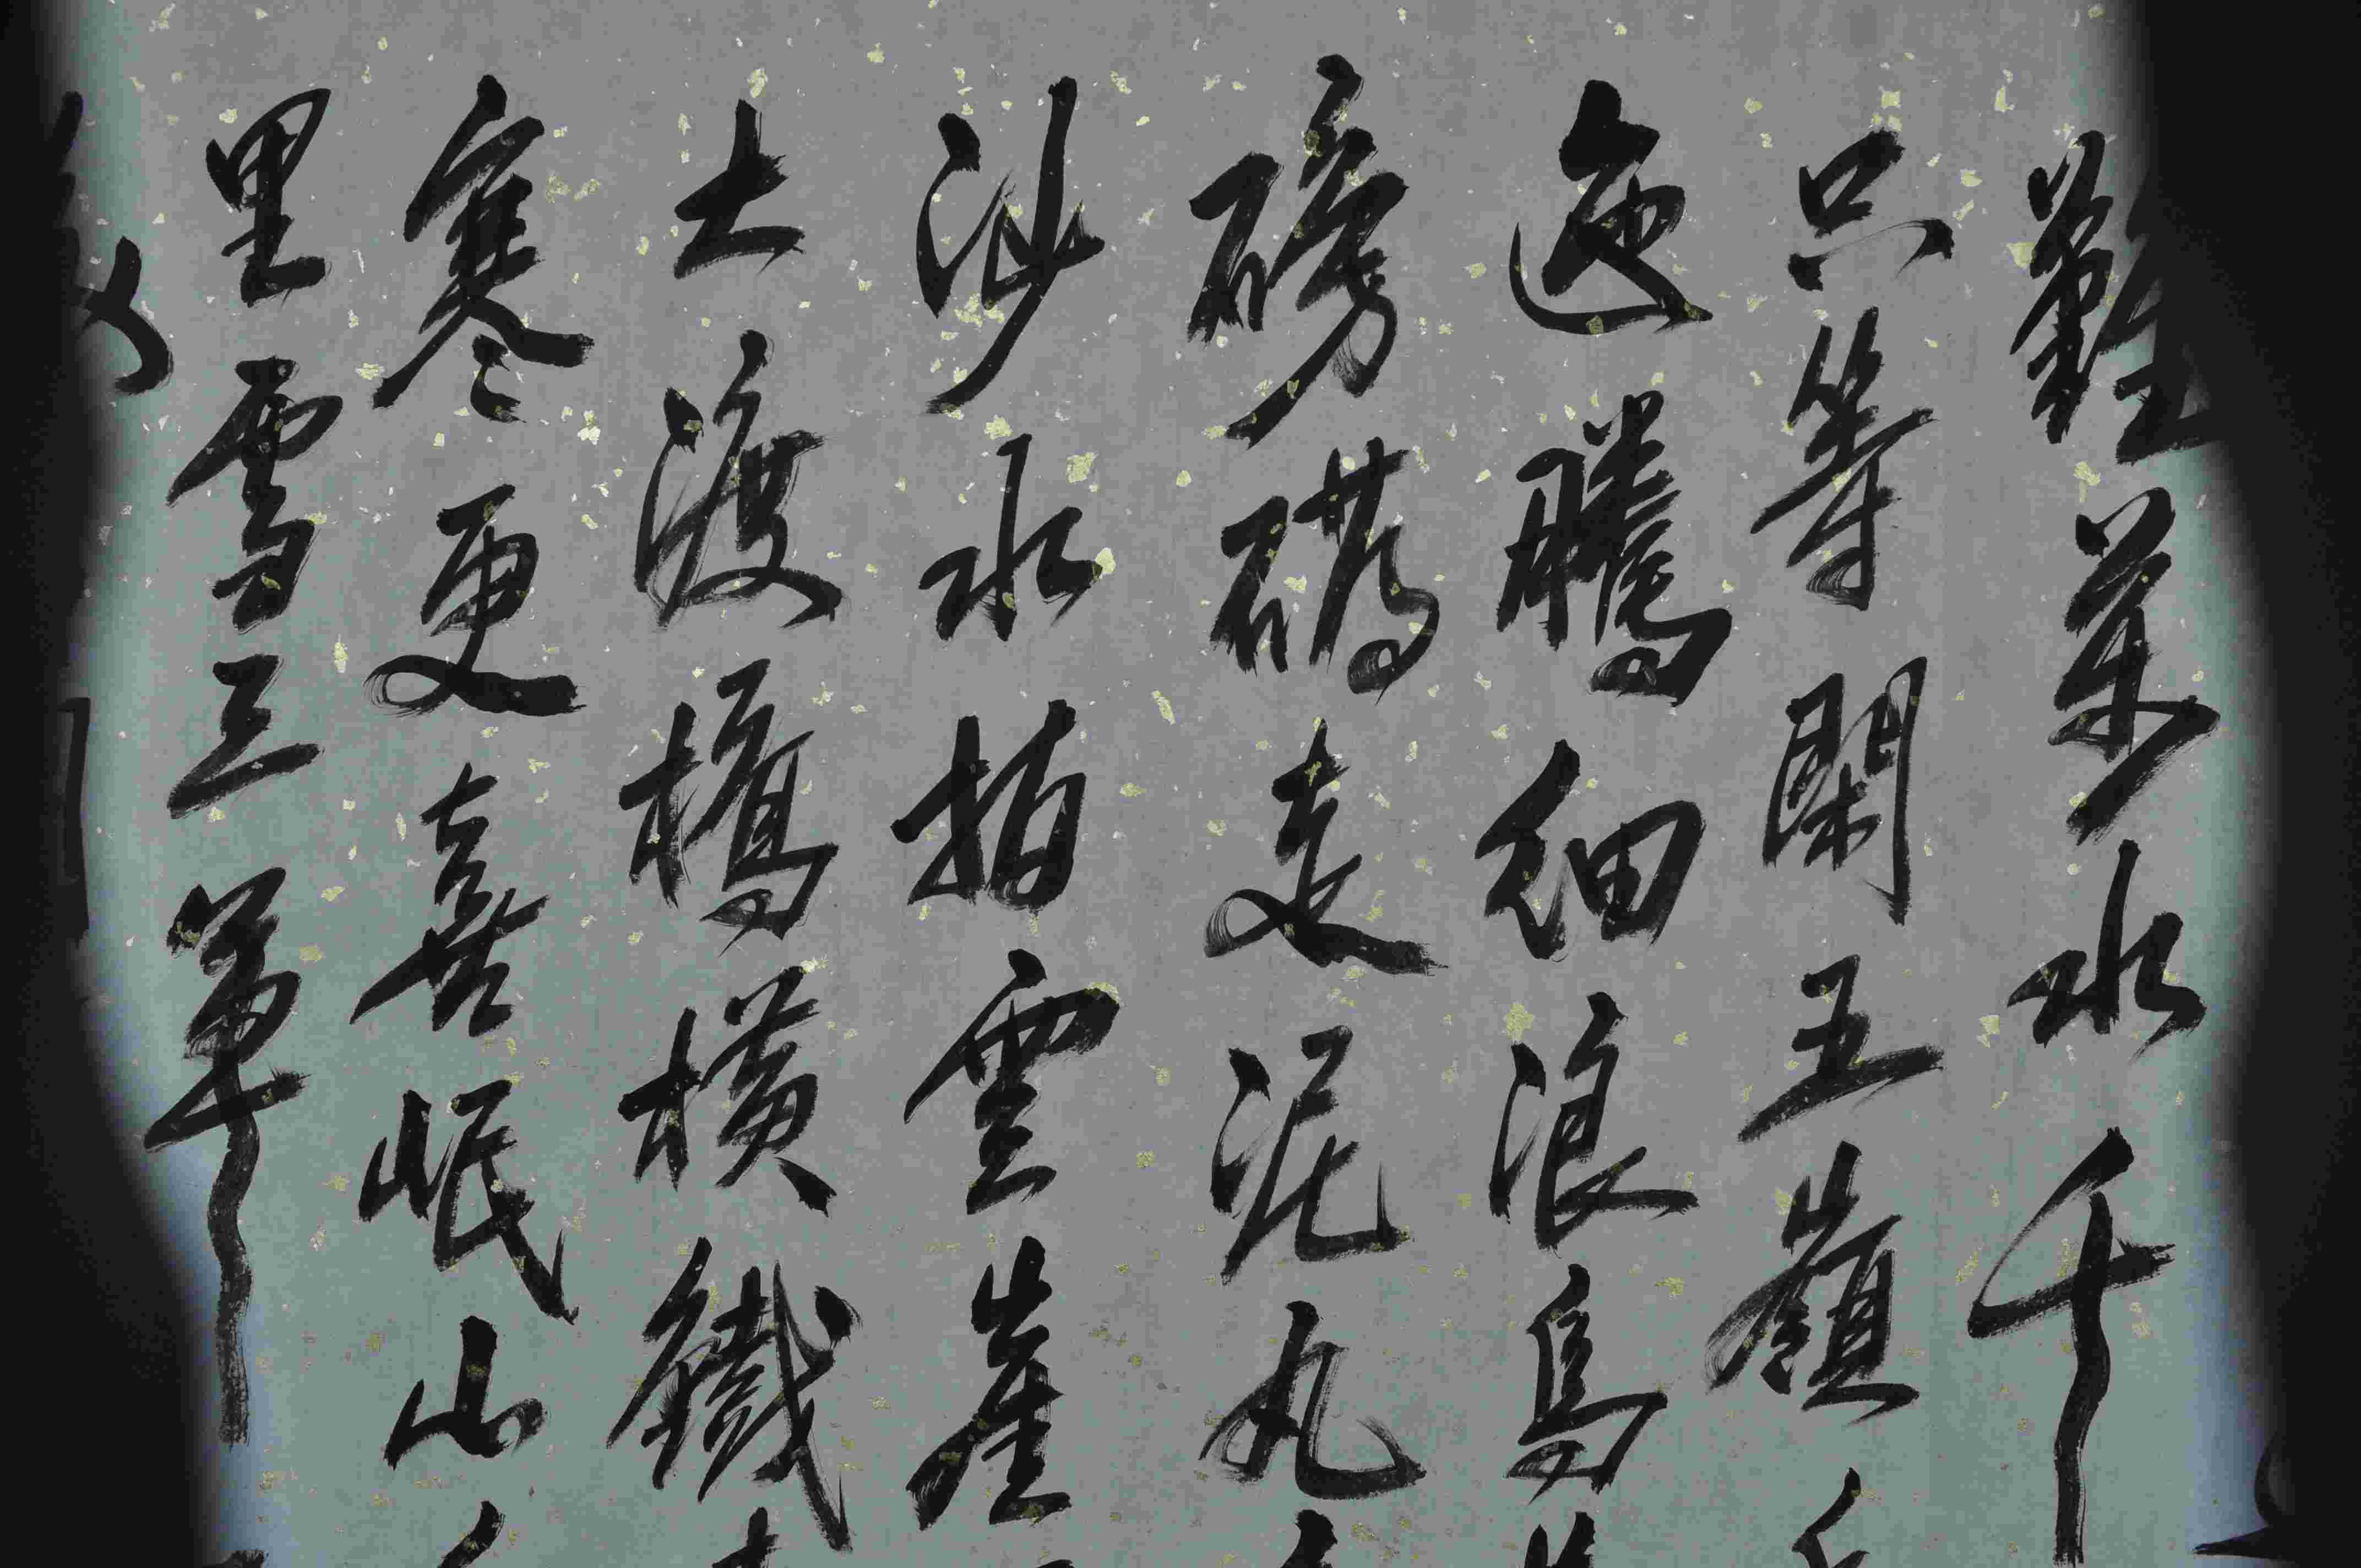 難萬水千
只等閑五嶺
迤騰細浪烏
磅礴走泥丸
沙水拍雲崖
大渡橋橫鐵
寒更喜岷山
里雪三軍